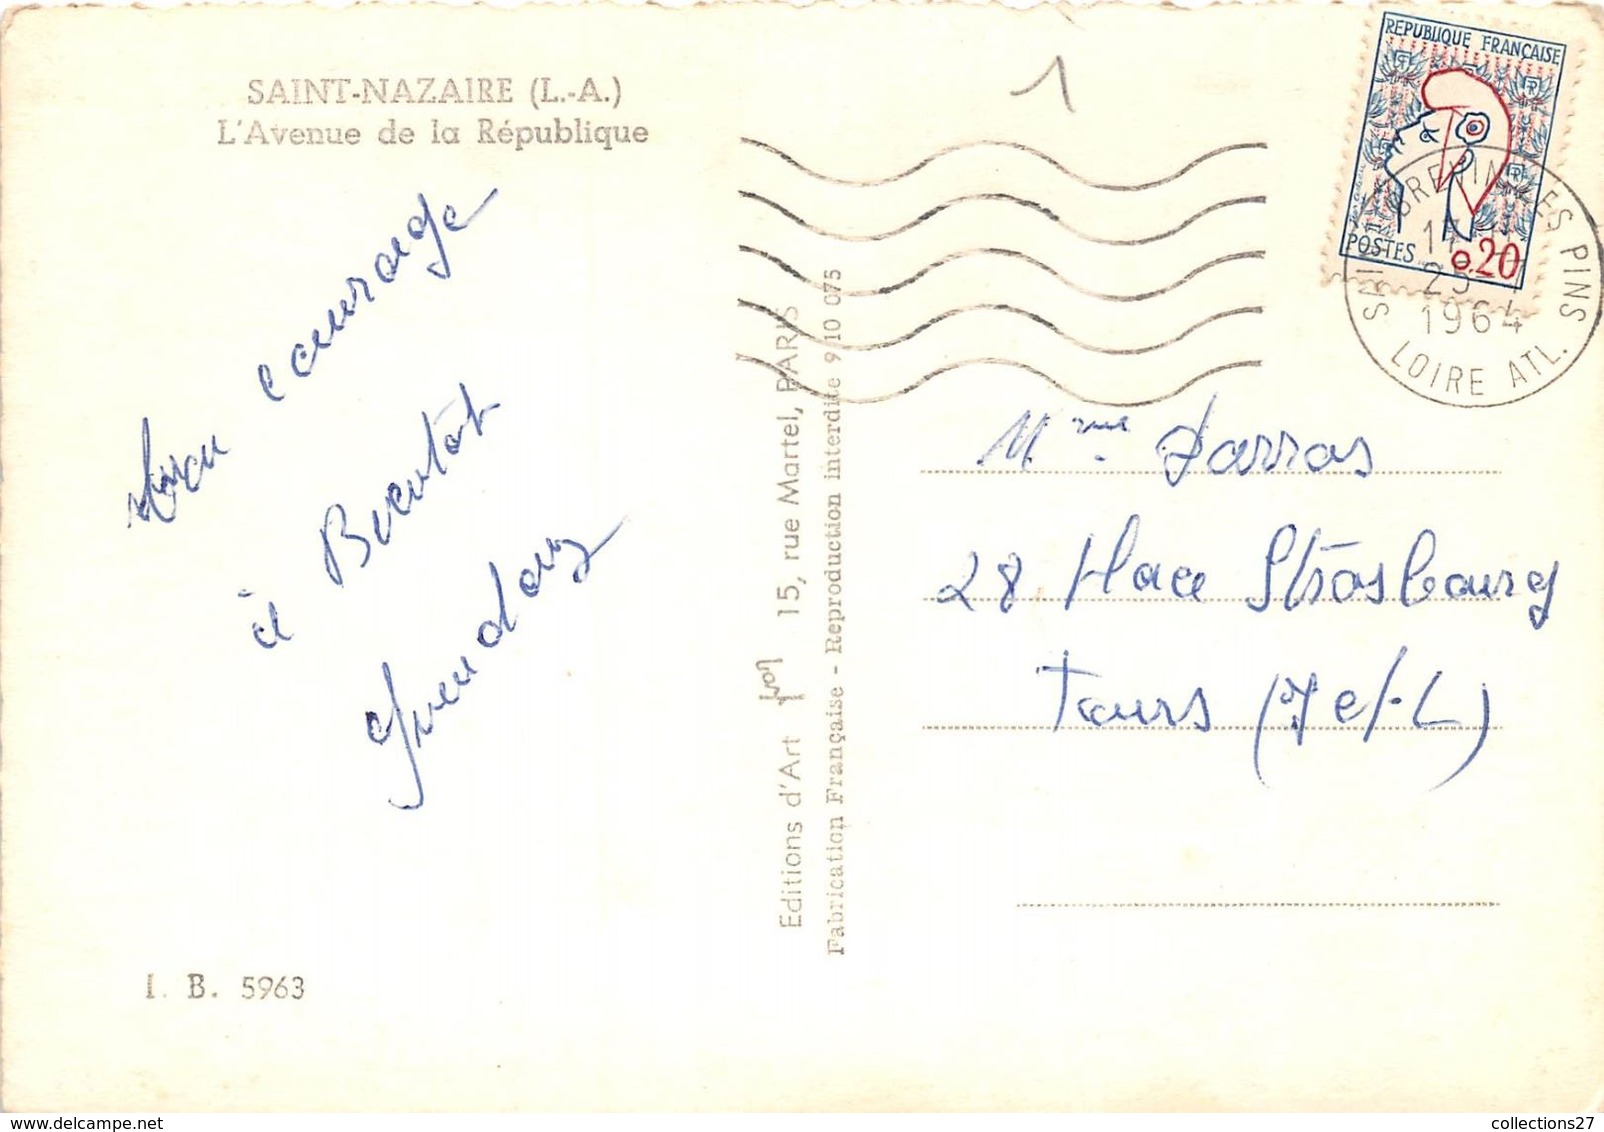 SAINT-NAZAIRE (L.-A.)
L'Avenue de la République
Bon courage
à Bientôt
I. B. 5963
Editions d'Art Yvon 15, rue Martel, PARIS
Fabrication Française - Reproduction interdite 9 10 075
1
REPUBLIQUE FRANÇAISE
POSTES 0,20
BREVIN LES PINS
1964
LOIRE ATL.
Mme Darras
28 Place Strasbourg
Tours (I et-L)
collections27